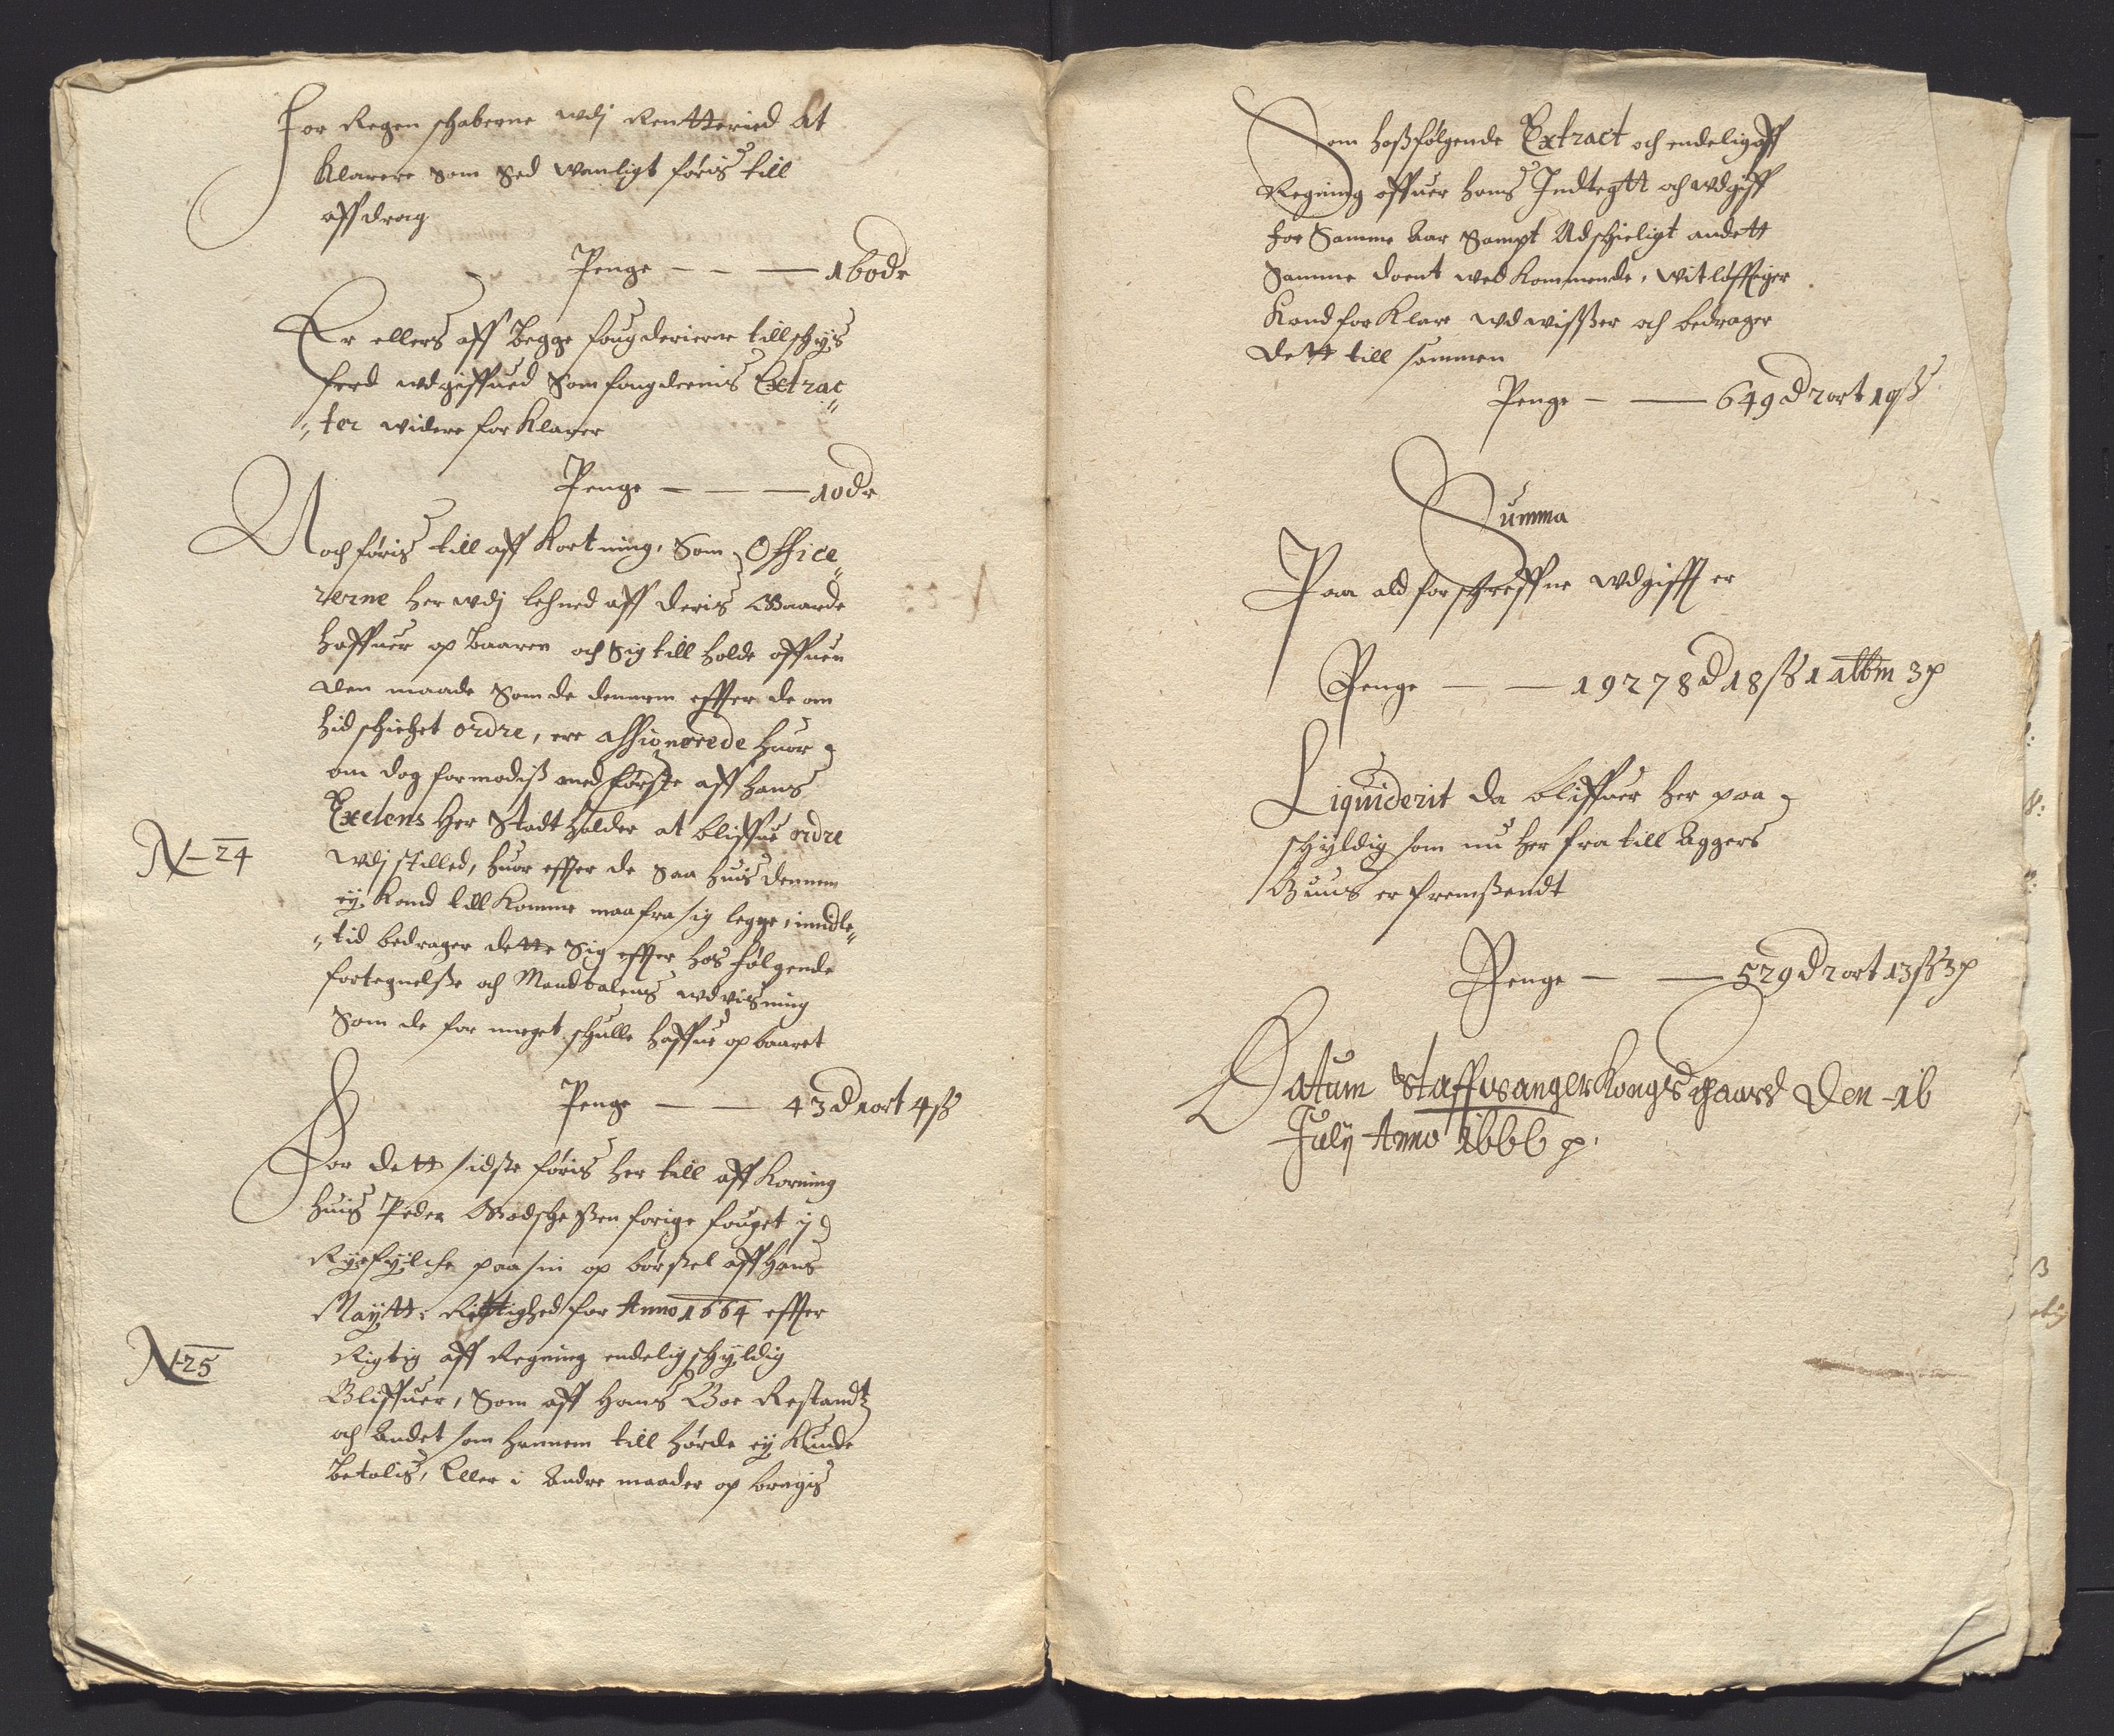 For Regenschaberne wdj Rentteried At
Klarere som sed wanligt føris till
affdrag
Penge — — 160 dr
Er ellers aff begge fougderierne tillschys
ferd wdgiffued som fougdernis Extrac„
„ter widere forKlarer
Penge — — 10 dr
Noch føris till aff Kortning, som Office„
rerne her wdj lehned aff deris Gaarde
haffuer opbaaren och sig till holde offuer
den maade som de dennem effter de om
hidschichet ordre, ere assignerede huor
om dog formodiss med første aff hans
Exelens Her Stadtholder at bliffue ordre
N– 24
wdj stilled, huor effter de saa huis dennem
ey Kand till Komme maa fra sig legge, imidle„
„tid bedrager dette sig effter hosfølgende
fortegnelsse och Mandtalens wdvisning
som de for meget schulle haffue opbaaret
Penge — — 43 d 1 ort 4 ß
For dett sidste føris her till aff Korning
huis Peder Godschessen forige fouget i
Ryefylche paa sin opbørssel aff Hans
Maytt: Rettighed for Anno 1664 effter
N 25
Rigtig aff Regning endelig schyldig
Bliffuer, som aff hans Boe Restandtz
och Andet som hannem till hørde ey Kunde
betalis, Eller i Andre maader opbringis
Som hossfølgende Extract och endelig aff
Regning offuer hans Indtegtt och wdgiff
for samme Aar sampt Adschieligt andett
samme doent wedkommende, witløfftiger
Kand forKlare wdwisser och bedrager
dett till sammen
Penge — — 649 d 2 ort 19 ß
Summa
Paa ald forschreffne wdgifft er
Penge — — 19278 d 18 ß 1 albm 3 p
Liquiderit da bliffuer her paa
schyldig som nu her fra till Aggers
Huus er fremssendt
Penge — — 529 d 2 ort 13 ß 3 p
Datum Staffuanger Kongsgaard Den 16
July Anno 1666 p.